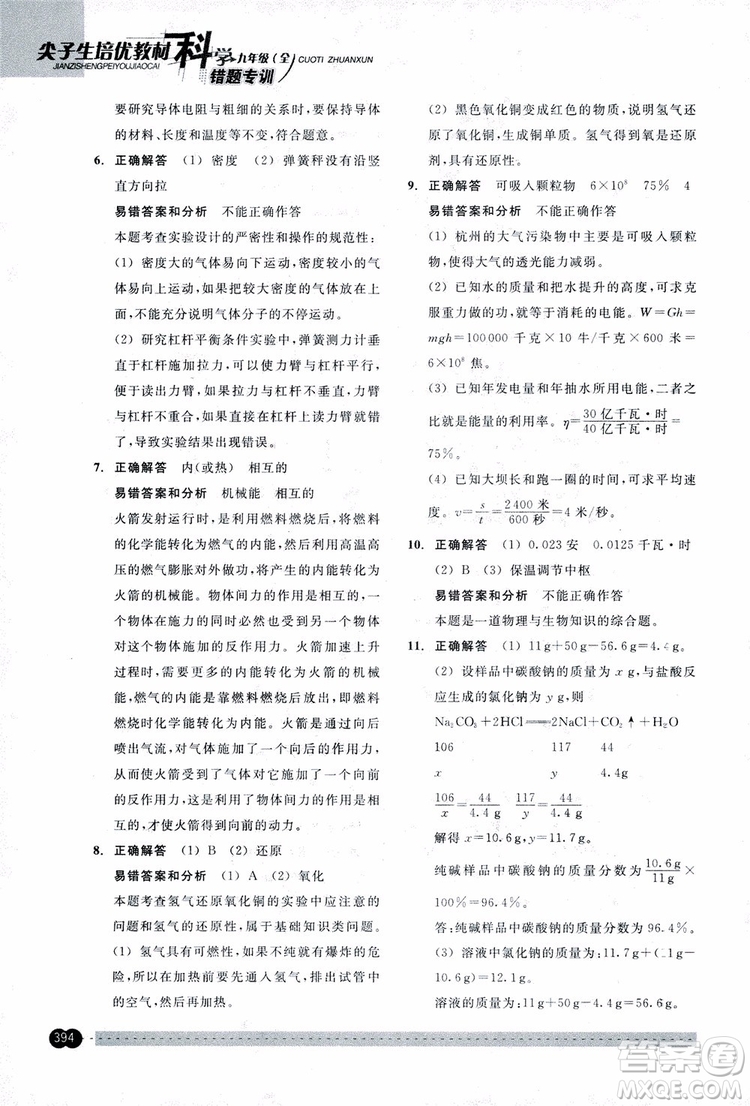 尖子生培优教材 科学九年级(全) CUOTI ZHUANXUN
JIANZISHENGPEIYOUJIAOCAI 错题专训
要研究导体电阻与粗细的关系时,要保持导体
的材料、长度和温度等不变,符合题意。
6. 正确解答 (1) 密度 (2) 弹簧秤没有沿竖
直方向拉
易错答案和分析 不能正确作答
本题考查实验设计的严密性和操作的规范性:
(1) 密度大的气体易向下运动,密度较小的气
体易向上运动,如果把较大密度的气体放在下
面,不能充分说明气体分子的不停运动。
(2) 研究杠杆平衡条件实验,弹簧测力计垂
直于杠杆施加拉力,可以使力臂与杠杆平行,
便于读出力臂,如果拉力与杠杆不垂直,力臂
与杠杆不重合,如果在杠杆上读力臂就偏大
了,导致实验结果出现错误。
7. 正确解答 内(或热) 相互的
易错答案和分析 机械能 相互的
火箭发射运行时,是利用燃料燃烧后,将燃料
的化学能转化为燃气的内能;利用高温高
压的燃气膨胀对外做功,将产生的内能转化为
火箭的机械能。物体间力的作用是相互的,
一个物体在施力的同时必然也受到了受力物
体施加的反作用力。火箭加速上升
过程中,需要更多的内能转化为火箭的机械
能,燃气的内能是靠燃料燃烧后放出,即燃料
燃烧时火箭的机械能增大。火箭是通过向后
喷出气流,对气体施加了一个向后的力,根据
力的相互作用,气体也会对火箭施加反作用力,
因此火箭受到了气体对它施加了一个向前
的反作用力,利用了物体间力的作用是相互
的,才使火箭得到向前的动力。
8. 正确解答 (1) B (2) 还原
易错答案和分析 (1) A (2) 氧化
本题考查氢气还原氧化铜的实验中应注意的
问题和氢气的还原性,属于基础知识类问题。
(1) 氢气具有可燃性,不纯时就有爆炸的危
险,所以在加热前应先通入氢气,排出试管中
的空气,然后再加热。
(2) 黑色氧化铜变成红色的物质,说明氢气还
原了氧化铜,生成铜单质。氢气作用是还原
剂,具有还原性。
9. 正确解答 可吸入颗粒物 6×10⁸ 75% 4
易错答案和分析 不能正确作答
(1) 杭州的大气污染物中主要是可吸入颗粒
物,使大气的透光能力减弱。
(2) 已知水的质量和把水提升的高度,可求克
服重力做的功,就等于消耗的电能。W=Gh=
mgh=100 000 千克×10 牛/千克×600 米=
6×10⁸ 焦。
(3) 已知年发电量和年抽水所用电能,二者之
比就是能量的利用率。η=30 亿千瓦·时/40 亿千瓦·时=
75%。
(4) 已知大坝长和跑一圈的时间,可求平均速
度。v=s/t=2 400 米/600 秒=4 米/秒。
10. 正确解答 (1) 0.023 安 0.0125 千瓦·时
(2) B (3) 保温调节中枢
易错答案和分析 不能正确作答
本题是一道物理与生物知识的综合题。
11. 正确解答 (1) 11 g+50 g-56.6 g=4.4 g
(2) 设样品中碳酸钠的质量为 x g,与盐酸反
应生成的氯化钠为 y g,则
Na₂CO₃+2HCl══2NaCl+CO₂↑+H₂O
106 117 44
x y 4.4 g
106/x=44/4.4 g 117/y=44/4.4 g
解得 x=10.6 g,y=11.7 g。
纯碱样品中碳酸钠的质量分数为10.6 g/11 g×
100%=96.4%。
答:纯碱样品中碳酸钠的质量分数为 96.4%。
(3) 溶液中氯化钠的质量为 11.7 g+(11 g-
10.6 g)=12.1 g
溶液的质量为:11 g+50 g-4.4 g=56.6 g
394
答案圈
MXQE.COM